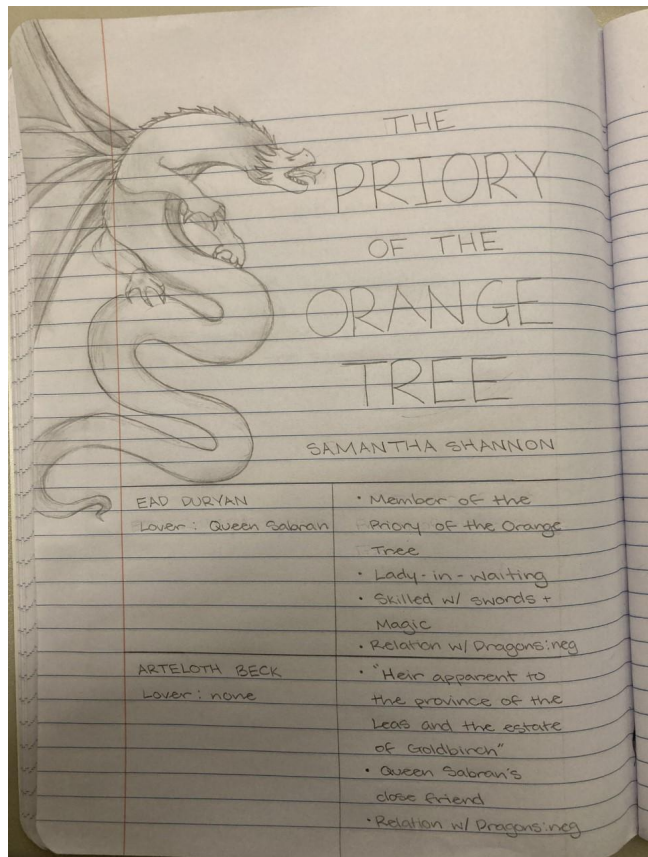 THE
PRIORY
OF THE
ORANGE
TREE
SAMANTHA SHANNON
EAD DURYAN
Lover: Queen Sabran
• Member of the
Priory of the Orange
Tree
• Lady-in-waiting
• Skilled w/ swords +
Magic
• Relation w/ Dragons:neg
ARTELOTH BECK
Lover: none
• "Heir apparent to
the province of the
Leas and the estate
of Goldbirch"
• Queen Sabran's
close friend
• Relation w/ Dragons:neg